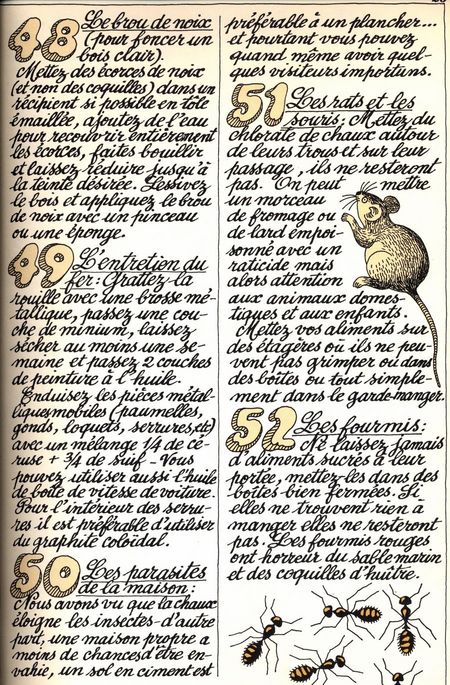 48 Le brou de noix
(pour foncer un
bois clair).
Mettez des écorces de noix
(et non des coquilles) dans un
récipient si possible en tôle
émaillée, ajoutez de l'eau
pour recouvrir entièrement
les écorces, faites bouillir
et laissez réduire jusqu'à
la teinte désirée. Lessivez
le bois et appliquez le brou
de noix avec un pinceau
ou une éponge.
49 L'entretien du
fer: Grattez la
rouille avec une brosse mé-
tallique, passez une cou-
che de minium, laissez
sécher au moins une se-
maine et passez 2 couches
de peinture à l'huile.
Enduisez les pièces métal-
liques mobiles (paumelles,
gonds, loquets, serrures, etc)
avec un mélange 1/4 de cé-
ruse + 3/4 de suif - Vous
pouvez utiliser aussi l'huile
de boîte de vitesse de voiture.
Pour l'intérieur des serru-
res il est préférable d'utiliser
du graphite coloïdal.
50 Les parasites
de la maison:
Nous avons vu que la chaux
éloigne les insectes - d'autre
part, une maison propre a
moins de chances d'être en-
vahie, un sol en ciment est
préférable à un plancher...
et pourtant vous pouvez
quand même avoir quel-
ques visiteurs importuns.
51 Les rats et les
souris: Mettez du
chlorate de chaux autour
de leurs trous et sur leur
passage, ils ne resteront
pas. On peut mettre
un morceau
de fromage ou
de lard empoi-
sonné avec un
raticide mais
alors attention
aux animaux domes-
tiques et aux enfants.
Mettez vos aliments sur
des étagères où ils ne peu-
vent pas grimper ou dans
des boîtes ou tout simple-
ment dans le garde-manger.
52 Les fourmis:
Ne laissez jamais
d'aliments sucrés à leur
portée, mettez-les dans des
boîtes bien fermées. Si
elles ne trouvent rien à
manger elles ne resteront
pas. Les fourmis rouges
ont horreur du sable marin
et des coquilles d'huître.